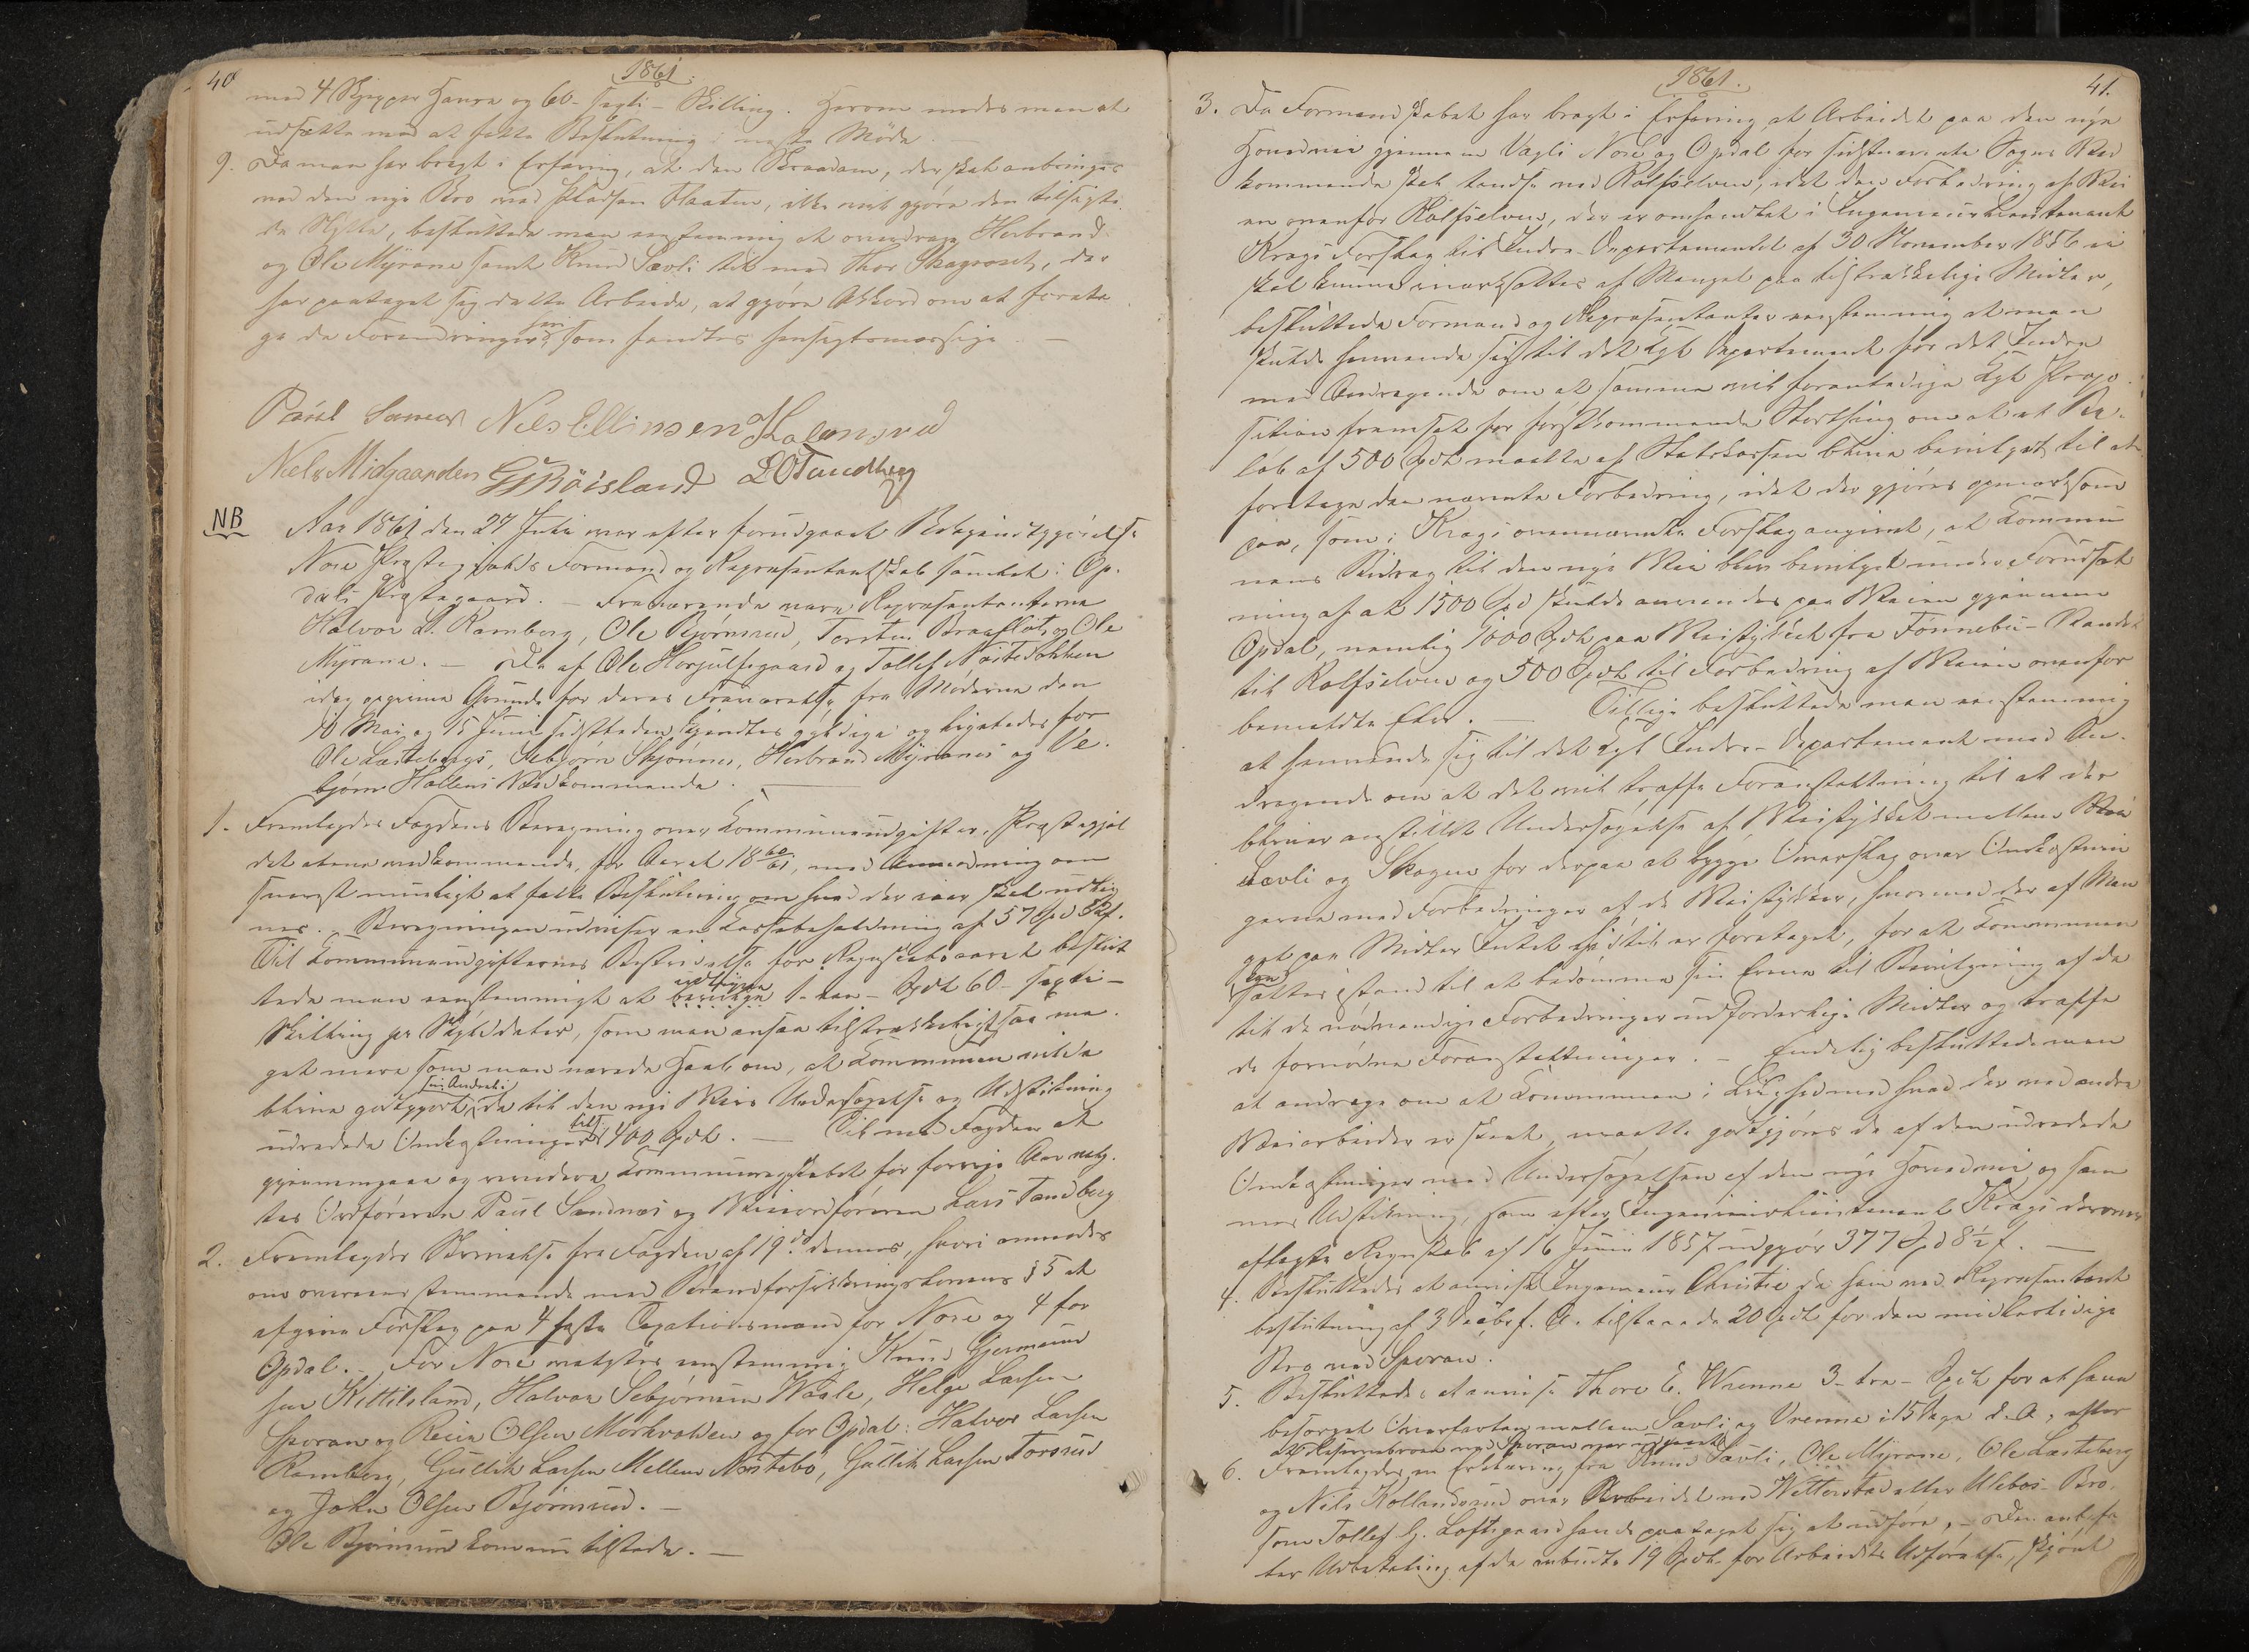 40
1861.
med 4 Skjepper Havre og 60 - segti - Skilling. Herom enedes man at
udsætte med at fatte Beslutning i neste Møde.
9. Da man har bragt i Erfaring, at den Skraadam, der skal anbringes
ved den nye Bro ved Pladsen Haaten, ikke vil gjøre den tilsigte-
de Nytte, besluttede man eenstemmig at overdrage Herbrand
og Ole Myrane samt Knud Sævli til med Thor Skagroset, der
har paataget sig dette Arbeide, at gjøre Akkord om at foreta-
ge de Forandringer, som fandtes hensigtsmæssige. —
Paul Sannes Nils Ellingsen Kolensrud
Niels Midgaarden G Røisland L O Tandberg
NB Aar 1861 den 27 Juli var efter forudgaaet Bekjendtgjørelse
Nore Præstegjælds Formand og Repræsentantskab samlet i Op-
dals Præstegaard. — Fraværende vare Repræsentanterne
Halvor L. Ramberg, Ole Bjørnsrud, Torsten Braaflot og Ole
Myrane. — De af Ole Horjulfsgaard og Tollef Nøstedokken
idag opgivne Grunde for deres Fraværelse fra Møderne den
10 Mai og 15 Juni sidstleden kjendtes gyldige og ligeledes for
Ole Lartebergs, Sebjørn Skjønnes, Herbrand Myranes og Ve-
bjørn Hallens Vedkommende. —
1. Fremlagdes Fogdens Beregning over Communeudgifter, Præstegjæl-
det alene vedkommende, for Aaret 18 60/61, med Anmodning om
snarest muligt at fatte Beslutning om hvad der iaar skal udlig-
nes. — Beregningen udviser en Cassebeholdning af 57 Spd 32 s.
Til Communeudgifternes Bestridelse for Regnskabsaaret beslut-
tede man eenstemmigt at bevilge udligne 1 - een - Spdl 60 - segti -
Skilling pr Skylddaler, som man ansaa tilstrækkeligt saa me-
get mere som man nærede Haab om, at Kommunen vilde
blive godtgjort sin Andel i de til den nye Veis Undersøgelse og Udstikning
udredede Omkostninger tils. 400 Spdl. — Til med Fogden at
gjennemgaa og revidere Communeregnskabet for forrige Aar valg-
tes Ordføreren Paul Sandnes og Viceordføreren Lars Tandberg
2. Fremlagdes Skrivelse fra Fogden af 19de dennes, hvori anmodes
om overeensstemmende med Brandforsikringslovens § 5 at
afgive Forslag paa 4 faste Taxationsmænd for Nore og 4 for
Opdal. — For Nore valgtes eenstemmig Knud Gjermund-
sen Kittilsland, Halvor Sebjørnsen Waale, Helge Larsen
Sporan og Reier Olsen Morkvolden og for Opdal: Halvor Larsen
Ramberg, Gullik Larsen Mellem Nøstebø, Gullik Larsen Torsrud
og John Olsen Bjørnsrud. —
Ole Bjørnsrud kom nu tilstede. —
1861.
41.
3. Da Formandskabet har bragt i Erfaring, at Arbeidet paa den nye
Hovedvei gjennem Vægli Nore og Opdal for sidstnævnte Sogns Ved-
kommende skal standse ved Rolfselven, idet den Forbedring af Vei-
en ovenfor Rolfselven, der er omhandlet i Ingenieurlieutenant
Krags Forslag til Indre-Departementet af 30 November 1856 ei
skal kunne iværksættes af Mangel paa tilstrækkelige Midler,
besluttede Formænd og Repræsentanter eenstemmig at man
skulde henvende sig til det Kgl Departement for det Indre
med Andragende om at samme vil foranledige Kgl Propo-
sition fremsat for førstkommende Storthing om at et Be-
løb af 500 Spdl maatte af Statskassen blive bevilget til at
foretage den nævnte Forbedring, idet der gjøres opmærksom
paa, som i Krags ovennævnte Forslag angivet, at Kommu-
nens Bidrag til den nye Vei blev bevilget under Forudsæt-
ning af at 1500 Spd skulde anvendes paa Veien gjennem
Opdal, nemlig 1000 Spdl paa Veistykket fra Fønnebø-Vandet
til Rolfselven og 500 Spdl til Forbedring af Veien ovenfor
bemeldte Elv. — Tillige besluttede man eenstemmig
at henvende sig til det Kgl Indre-Departement med An-
dragende om at det vil træffe Foranstaltning til at der
bliver anstillet Undersøgelse af Veistykket mellem
Sævli og Skogen for derpaa at bygge Overslag over Omkostnin-
gerne med Forbedringer af de Veistykker, hvorved der af Man-
gel paa Midler Intet hidtil er foretaget, for at Kommunen
kan sættes istand til at bedømme sin Evne til Bevilgning af de
til de nødvendige Forbedringer udforderlige Midler og træffe
de fornødne Foranstaltninger. — Endelig besluttede man
at andrage om at Kommunen i Lighed med hvad der ved andre
Veiarbeider er skeet, maatte godtgjøres de af den udredede
Omkostninger med Undersøgelsen af den nye Hovedvei og sam-
mes Udstikning, som efter Ingenieurlieutenant Krags derover
aflagte Regnskab af 16 Juni 1857 udgjør 377 Spd 8½ s. —
4. Besluttedes at anvise Ingenieur Christie de ham ved Repræsentant-
beslutning af 3 Decbr f. A. tilstaaede 20 Spdl for den midlertidige
Bro ved Sporan.
5. Besluttedes at anvise Thore E. Wrenne 3 - tre - Spdl for at have
besørget Overfarten mellem Sævli og Vrenne i 15 Dage d. A., efter
at Reservebroen ved Sporan var udgaaet.
6. Fremlagdes en Erklæring fra Knud Sævli, Ole Myrane, Ole Larteberg
og Nils Kollandsrud over Arbeidet ved Wetterstad eller Ulebøs-Bro,
som Tollef G. Loftsgaard havde paataget sig at udføre, — Den anbefa-
ler Udbetaling af de anbudte 19 Spdl. for Arbeidets Udførelse, skjønt